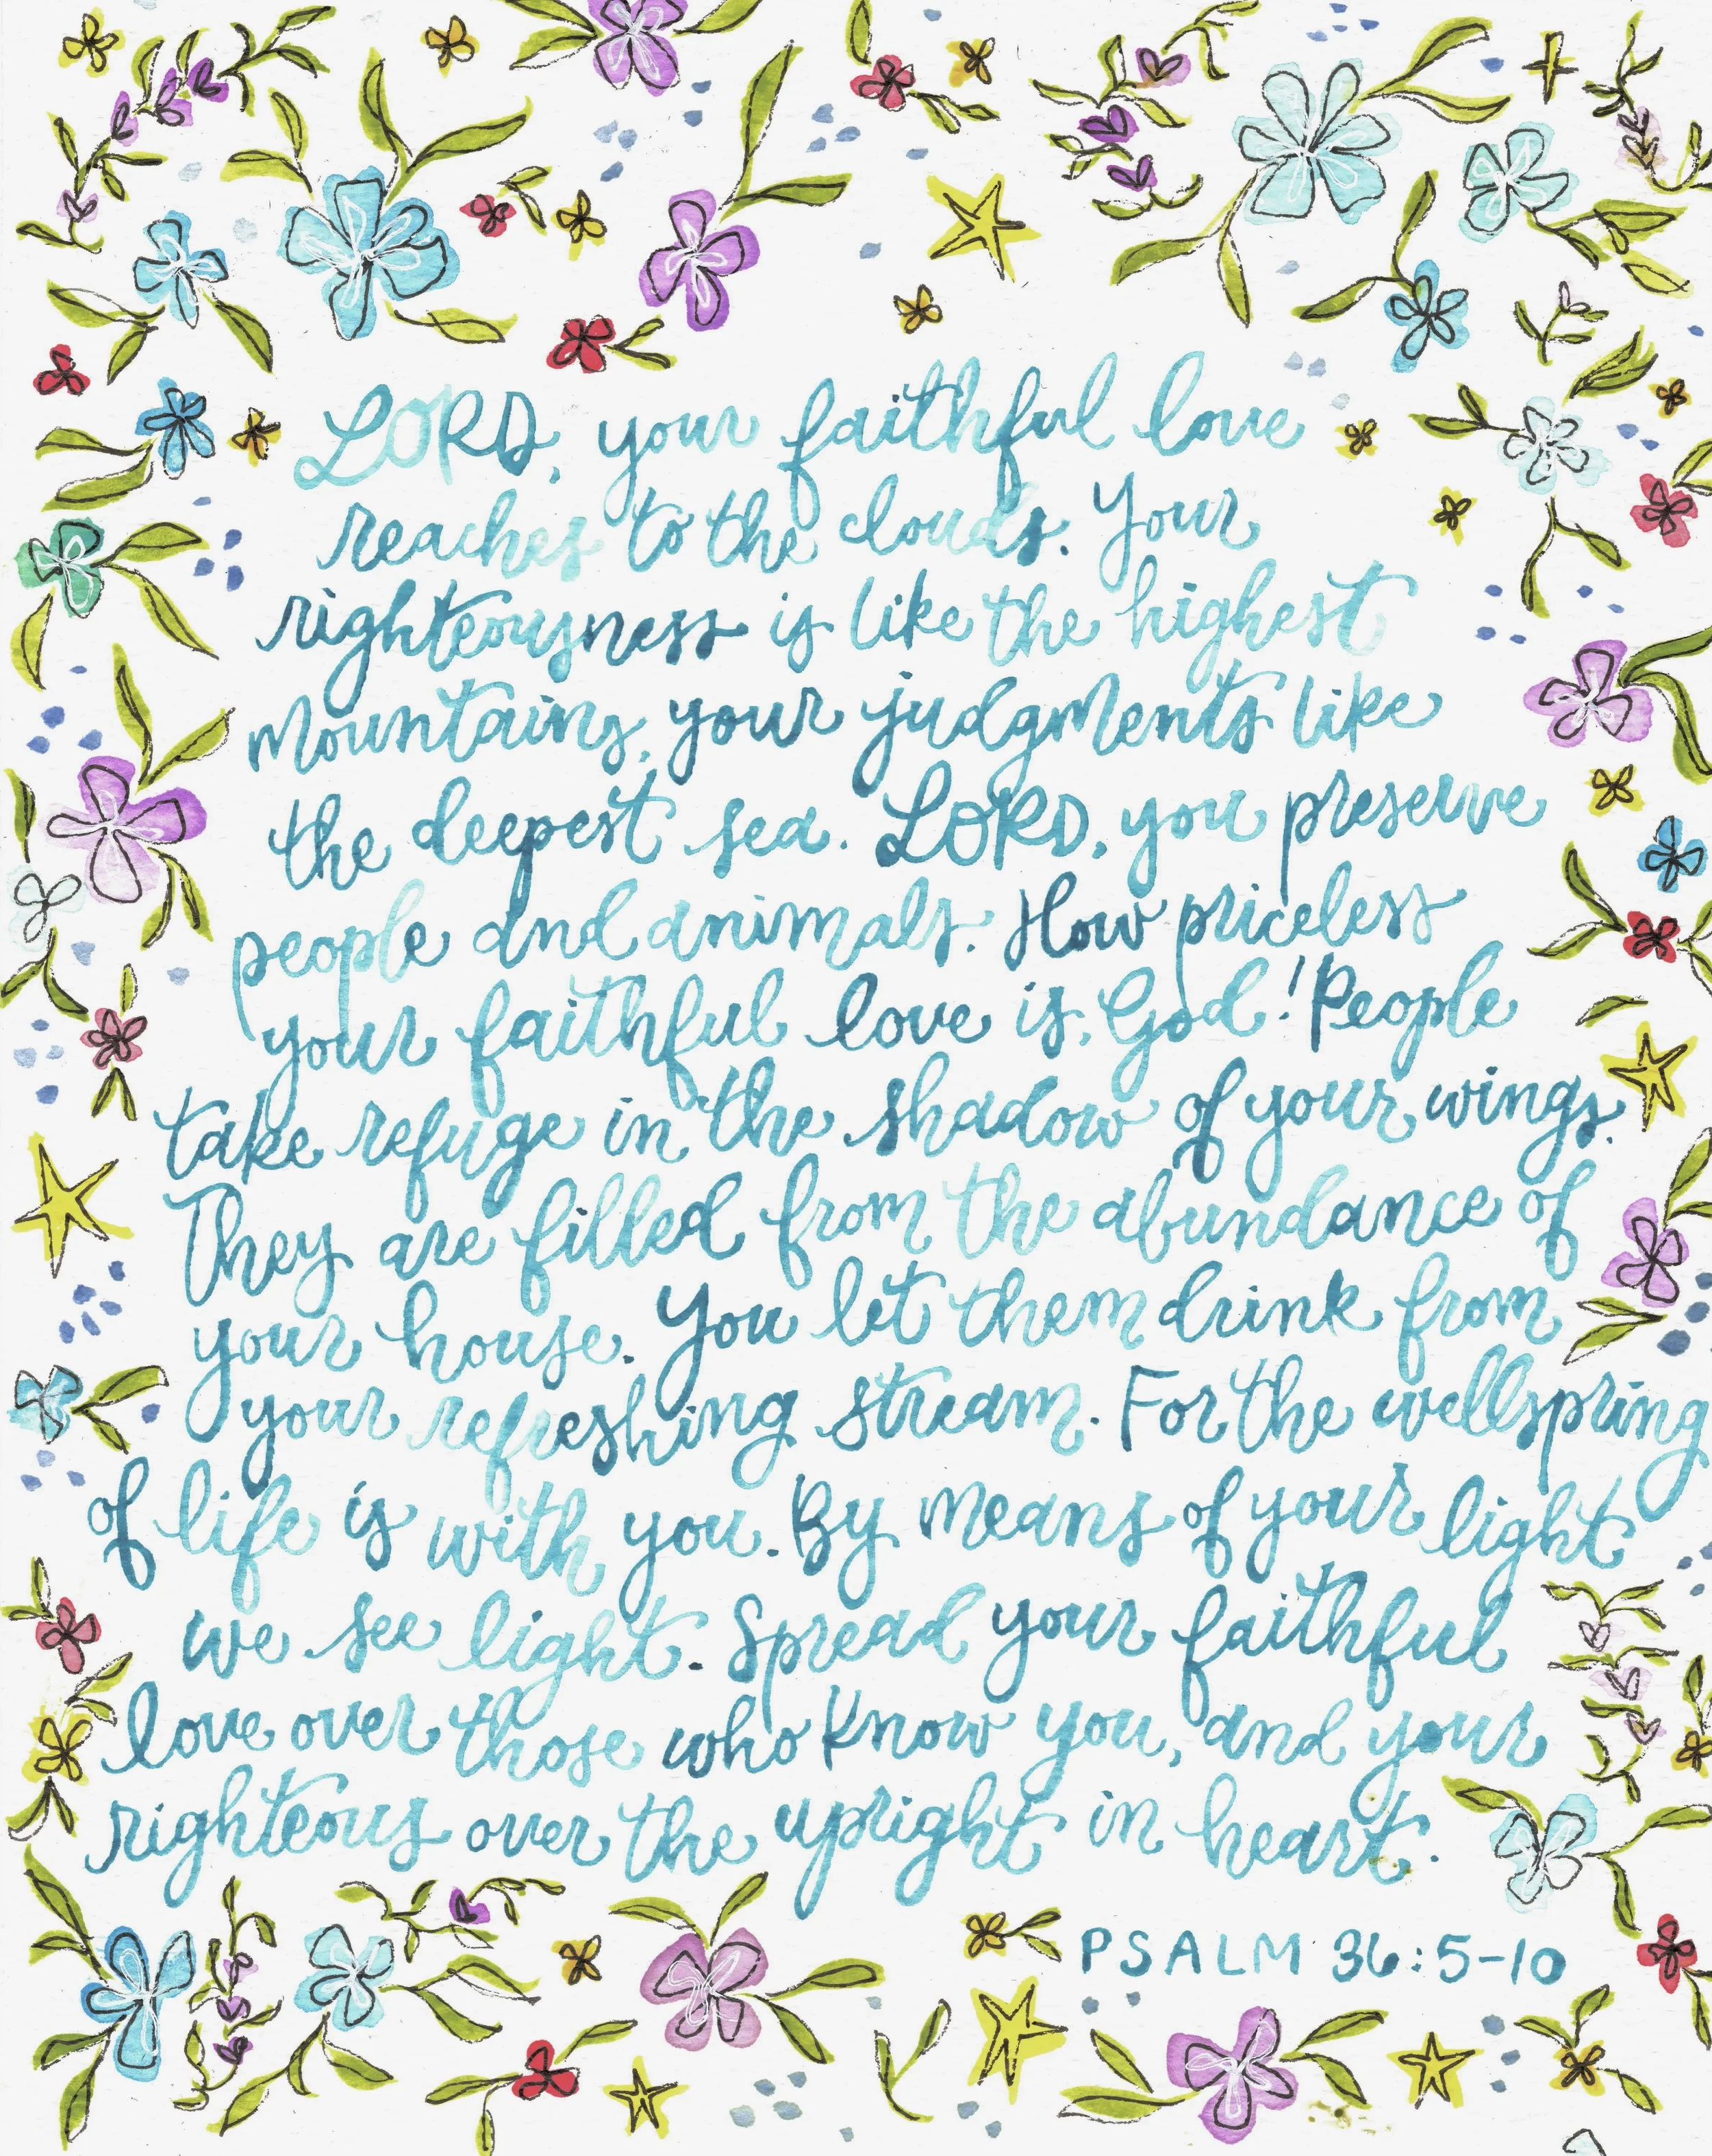 LORD, your faithful love
reaches to the clouds. Your
righteousness is like the highest
mountains, your judgments like
the deepest sea. LORD, you preserve
people and animals. How priceless
your faithful love is, God! People
take refuge in the shadow of your wings.
They are filled from the abundance of
your house. You let them drink from
your refreshing stream. For the wellspring
of life is with you. By means of your light
we see light. Spread your faithful
love over those who know you, and your
righteous over the upright in heart.
PSALM 36:5-10